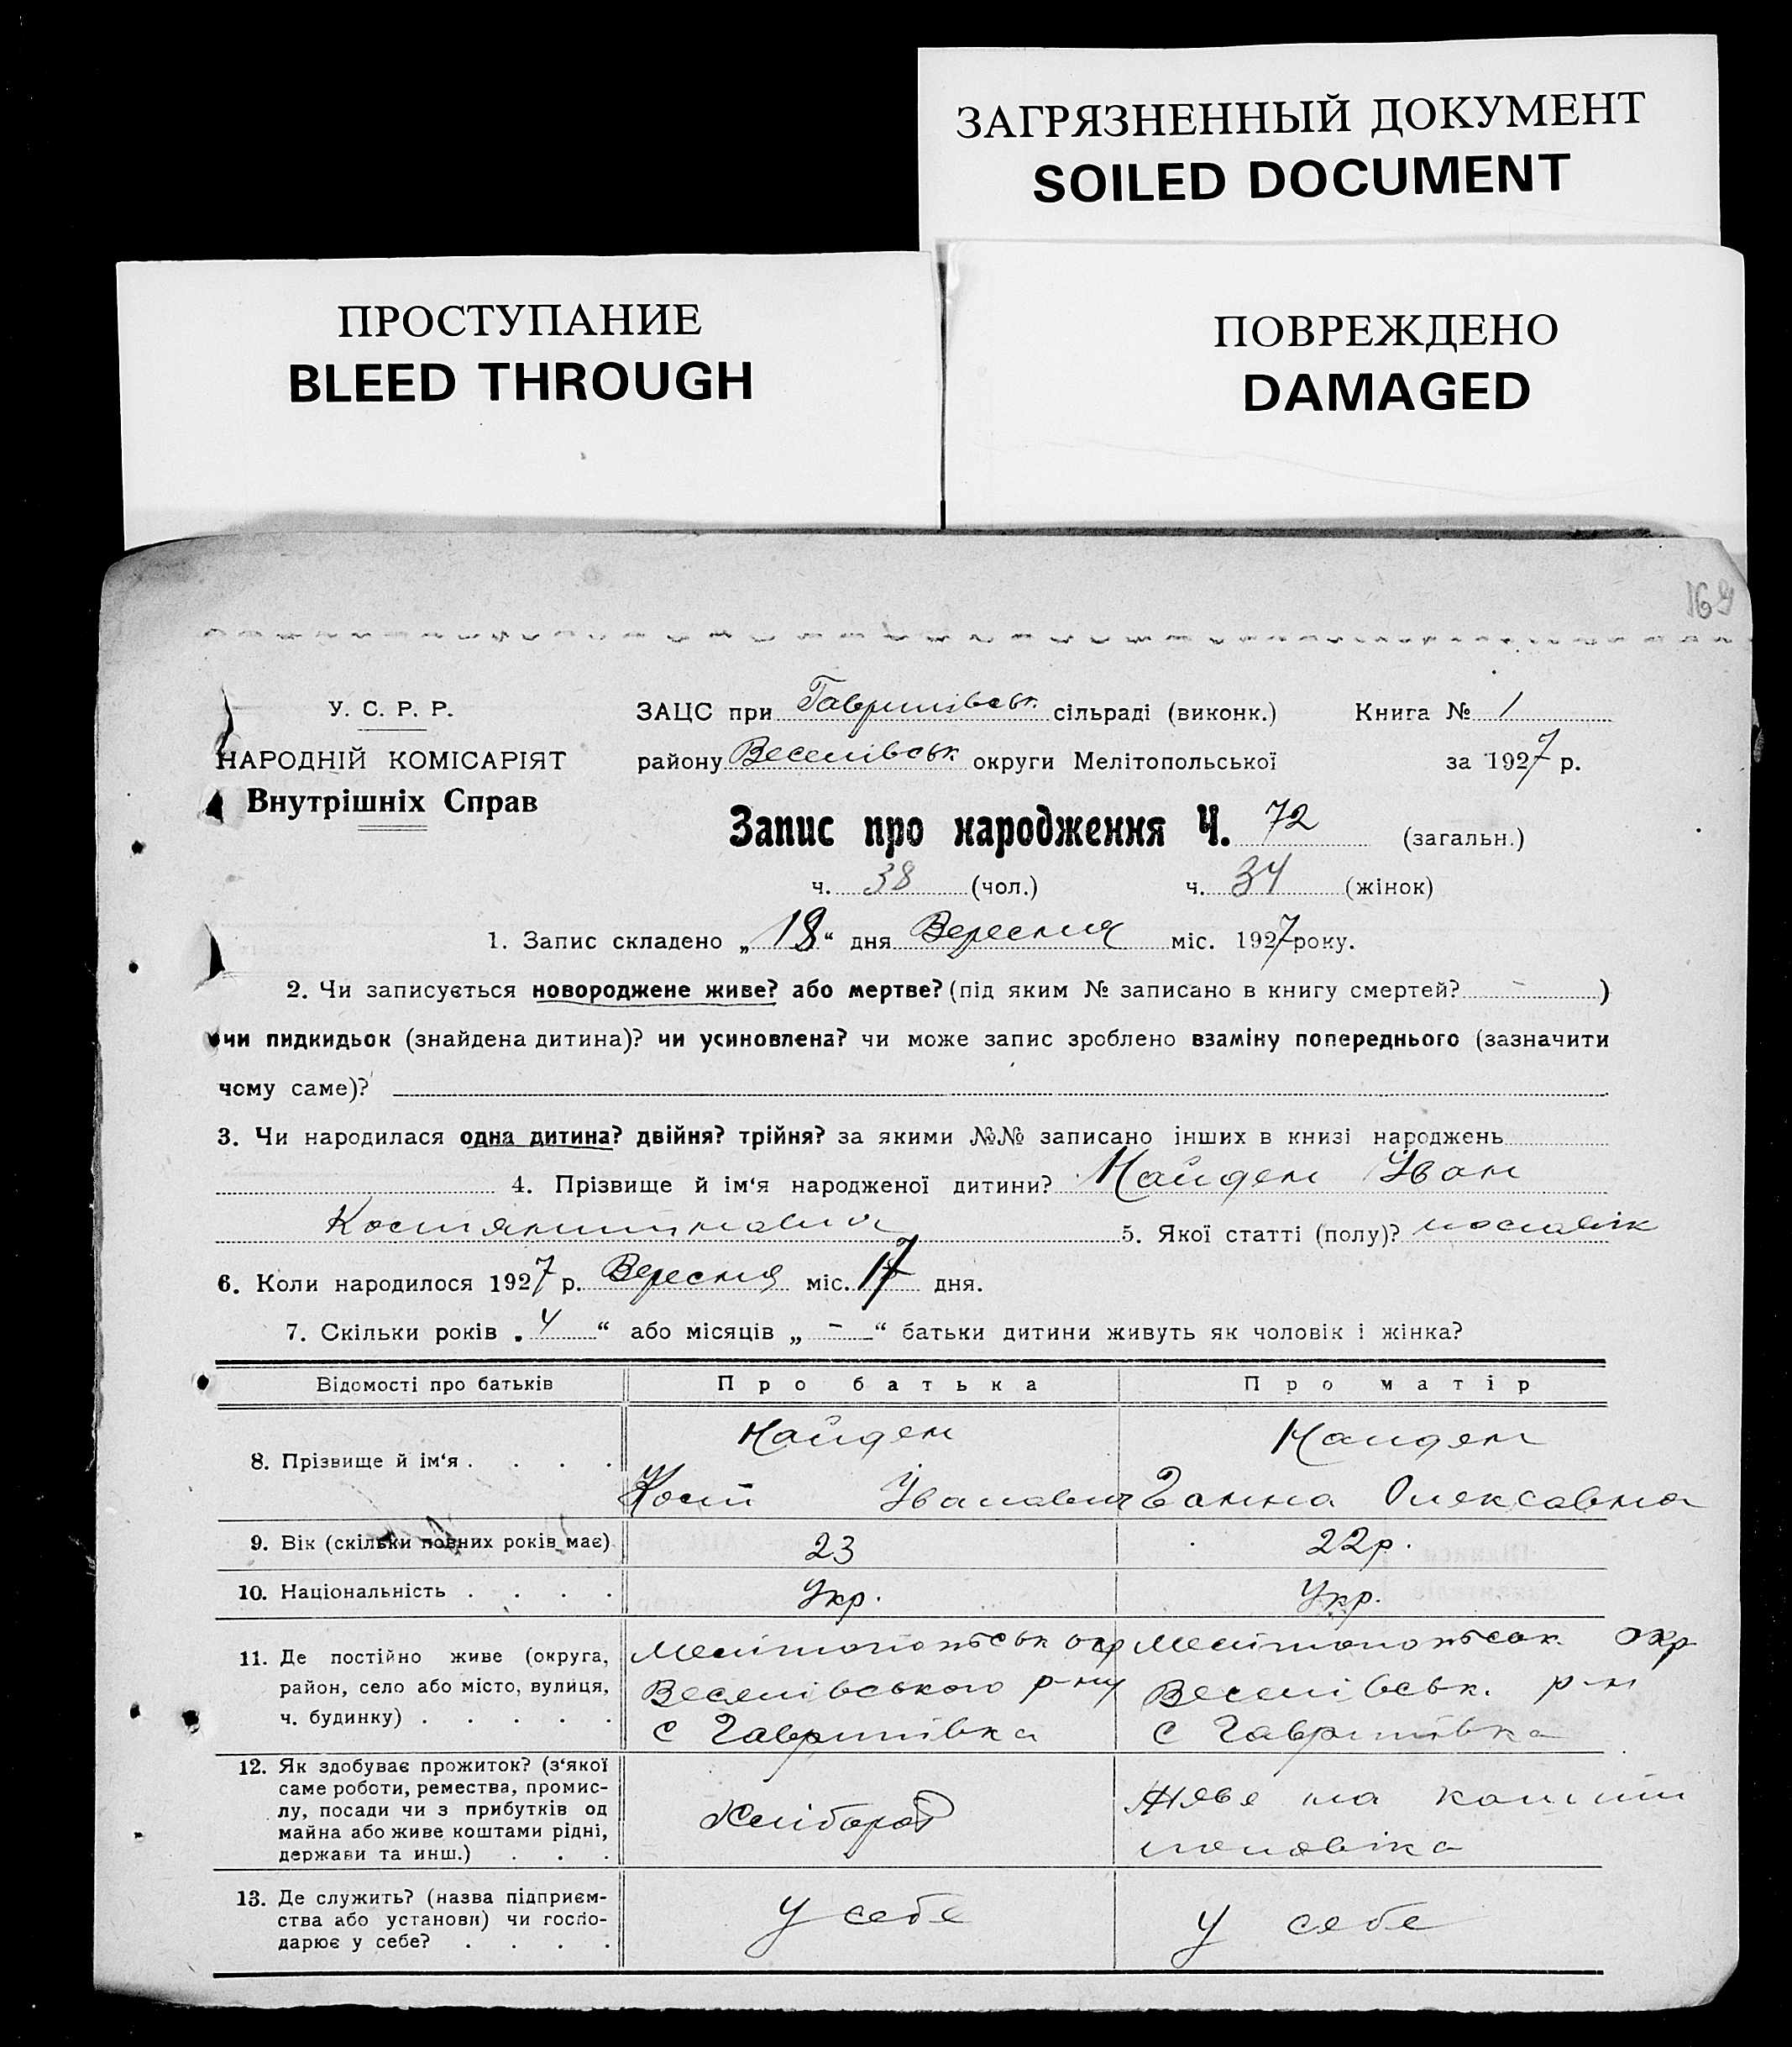 ЗАГРЯЗНЕННЫЙ ДОКУМЕНТ
SOILED DOCUMENT
ПРОСТУПАНИЕ
BLEED THROUGH
ПОВРЕЖДЕНО
DAMAGED
169
У. С. Р. Р.
НАРОДНІЙ КОМІСАРІЯТ
Внутрішніх Справ
ЗАЦС при Гаврилівськ. сільраді (виконк.) Книга № 1
району Веселівськ. округи Мелітопольської за 1927 р.
Запис про народження Ч. 72 (загальн.)
ч. 38 (чол.) ч. 34 (жінок)
1. Запис складено „ 18 “ дня Вересня міс. 1927 року.
2. Чи записується новороджене живе? або мертве? (під яким № записано в книгу смертей? - )
чи пидкидьок (знайдена дитина)? чи усиновлена? чи може запис зроблено взаміну попереднього (зазначити
чому саме)?
3. Чи народилася одна дитина? двійня? трійня? за якими №№ записано інших в книзі народжень
4. Прізвище й ім‘я народженої дитини? Найден Іван
Костянтинович 5. Якої статті (полу)? чоловік
6. Коли народилося 1927 р. Вересня міс. 17 дня.
7. Скільки років „ 4 “ або місяців „ - “ батьки дитини живуть як чоловік і жінка?
Відомості про батьків Про батька Про матір
8. Прізвище й ім‘я . . . . Найден Найден
Кост Іванович Ганна Олексавна
9. Вік (скільки повних років має) 23 22р.
10. Національність . . . . Укр. Укр.
11. Де постійно живе (округа, Мелітопольськ окр Мелітопольськ. окр
район, село або місто, вулиця, Веселівського р-ну Веселівськ. р-н
ч. будинку) . . . . . с Гаврилівка с Гаврилівка
12. Як здобуває прожиток? (з‘якої
саме роботи, ремества, промис-
лу, посади чи з прибутків од
майна або живе коштами рідні,
держави та инш.) . . .
Хлібороб
Живе на кошти
чоловіка
13. Де служить? (назва підприєм-
ства або установи) чи госпо-
дарює у себе? . . . .
У себе
У себе